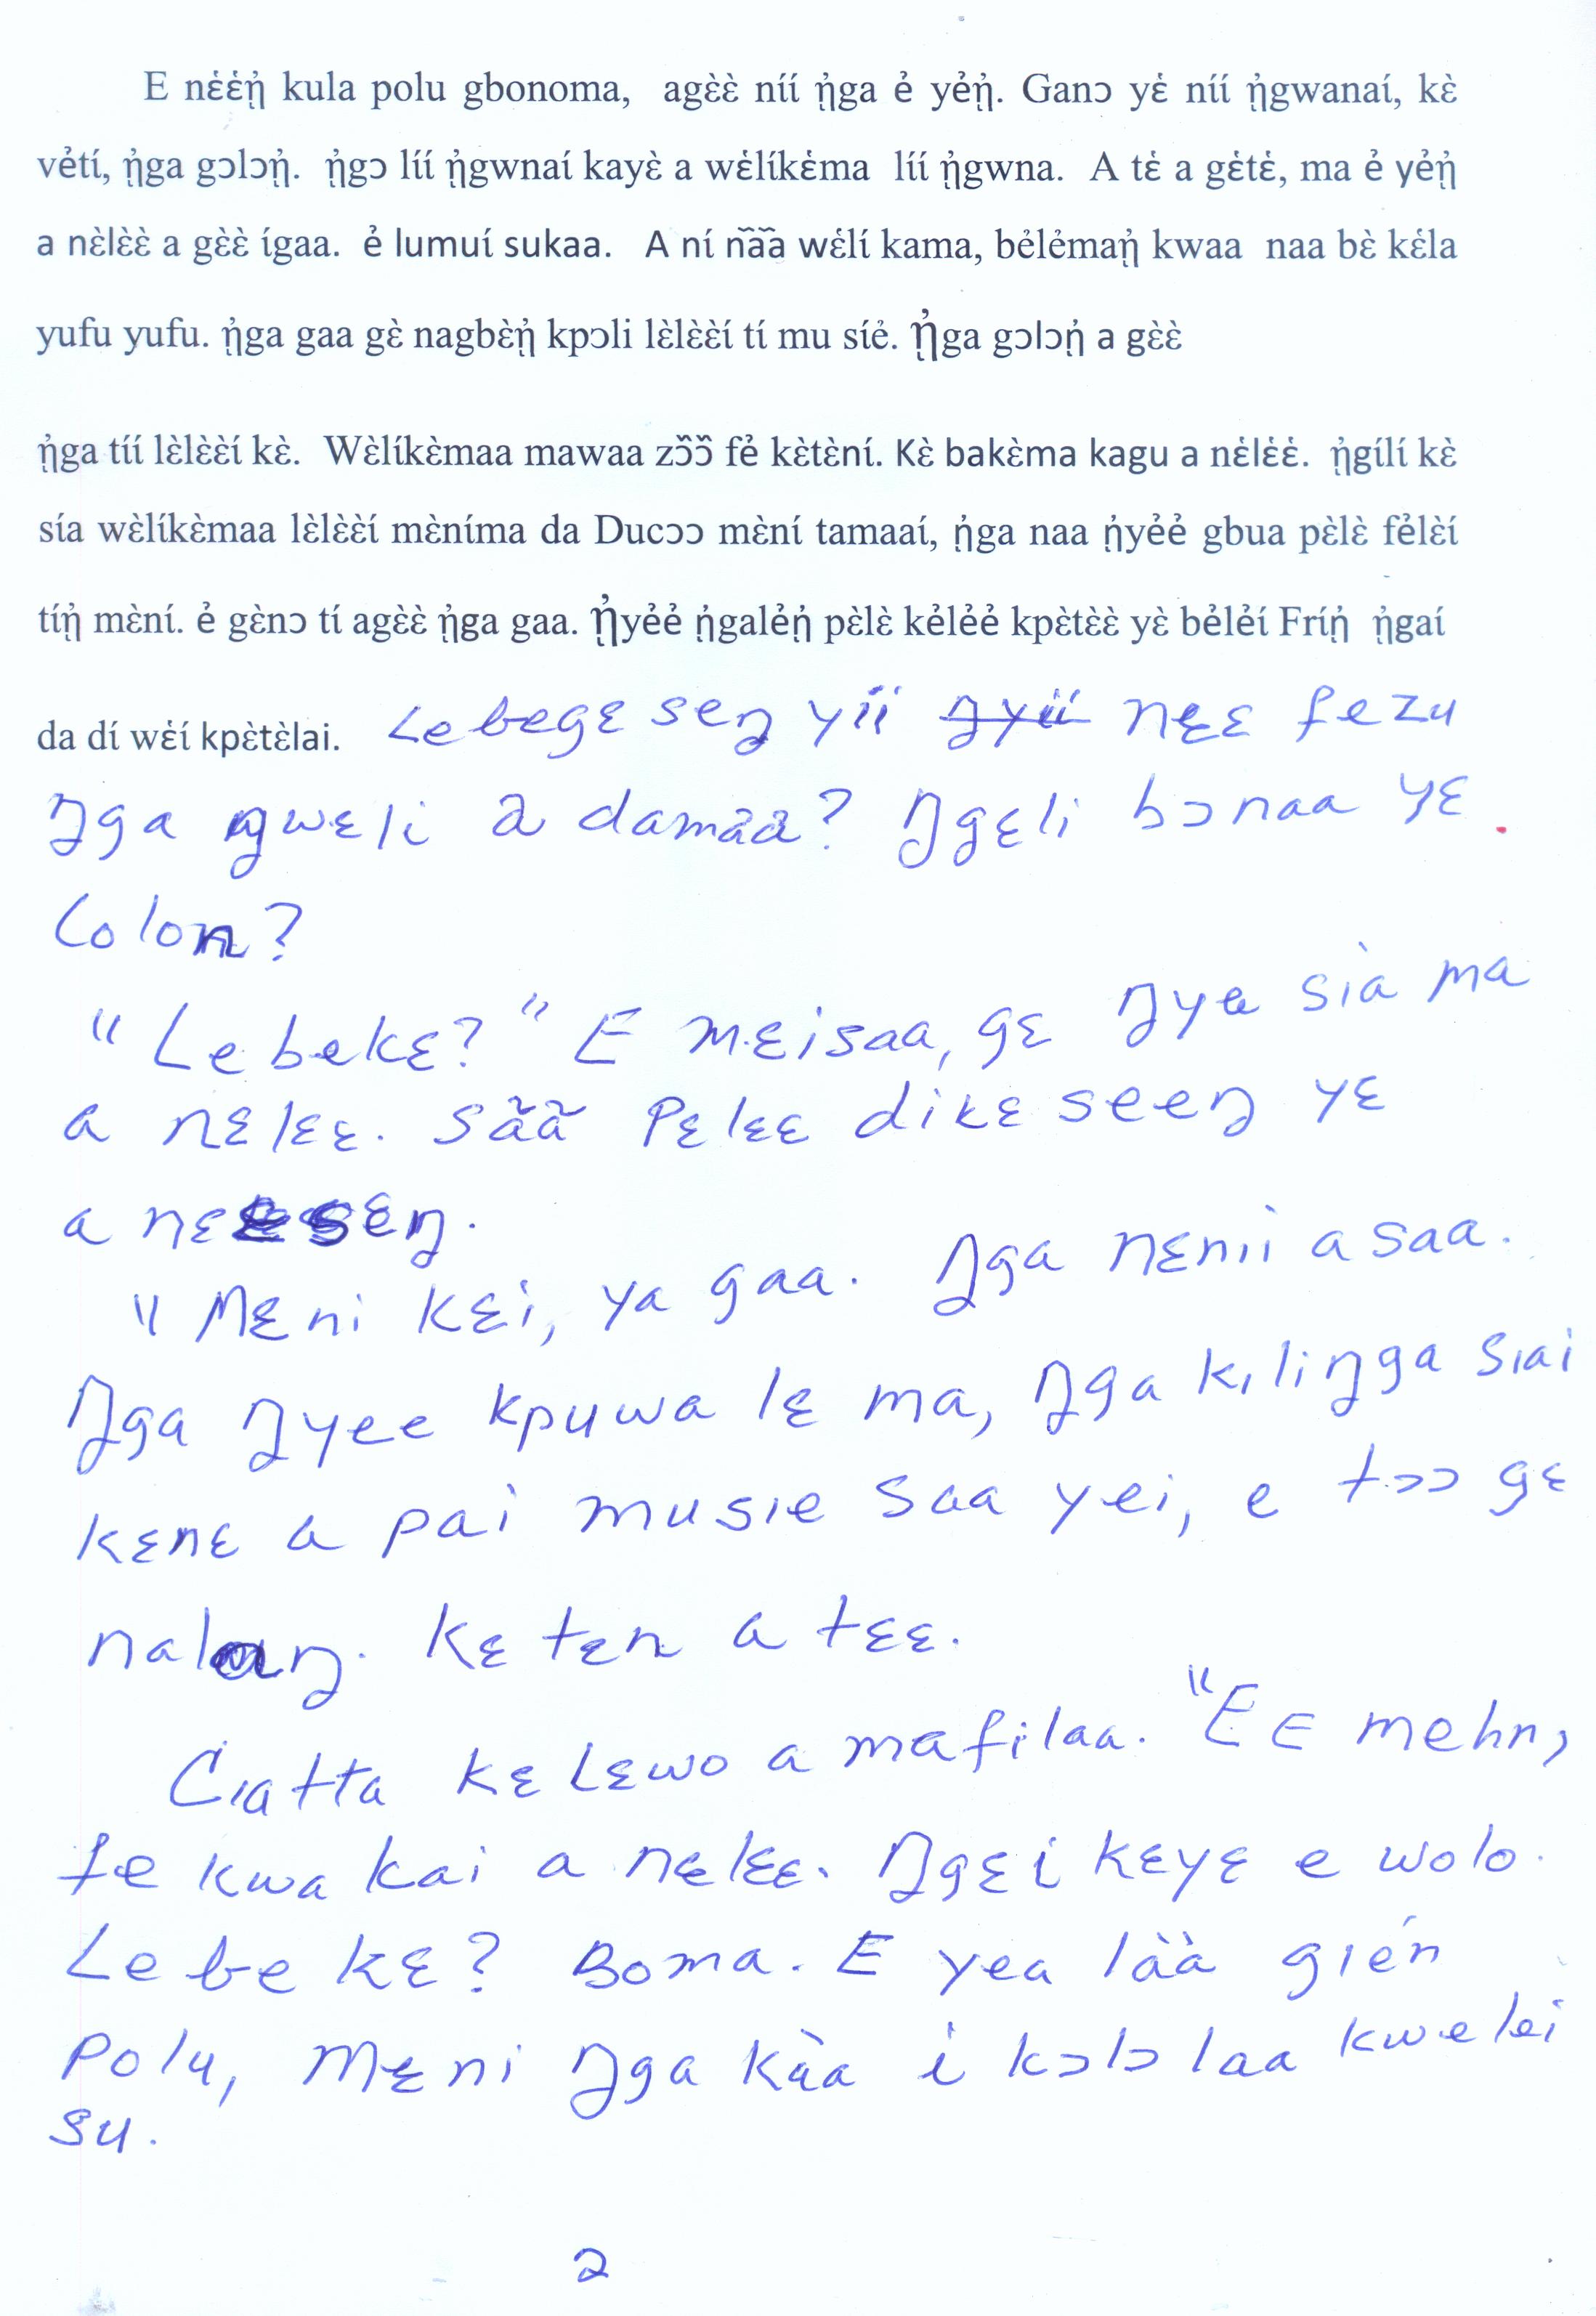 E nɛ́ɛ́ŋ̉ kula polu gbonoma, agɛ̀ɛ̀ níí ŋ̉ga ẻ yẻŋ̉. Ganɔ yɛ́ níí ŋ̉gwanaí, kɛ̀
vẻtí, ŋ̉ga gɔlɔŋ̉. ŋ̉gɔ líí ŋ̉gwnaí kayɛ̀ a wɛ́líkɛ́ma líí ŋ̉gwna. A tɛ́ a gɛ́tɛ́, ma ẻ yẻŋ̉
a nɛ̀lɛ̀ɛ̀ a gɛ̀ɛ̀ ígaa. ẻ lumuí sukaa. A ní ñãã wɛ́lí kama, bẻlẻmaŋ̉ kwaa naa bɛ̀ kɛ́la
yufu yufu. ŋ̉ga gaa gɛ̀ nagbɛ̀ŋ̉ kpɔli lɛ̀lɛ̀ɛ̀í tí mu síẻ. Ŋ̉ga gɔlɔŋ̉ a gɛ̀ɛ̀
ŋ̉ga tíí lɛ̀lɛ̀ɛ̀í kɛ̀. Wɛ̀líkɛ̀maa mawaa zɔ̃ɔ̃ fẻ kɛ̀tɛ̀ní. Kɛ̀ bakɛ̀ma kagu a nɛ́lɛ́ɛ́. ŋ̉gílí kɛ̀
sía wɛ̀líkɛ̀maa lɛ̀lɛ̀ɛ̀í mɛ̀níma da Ducɔɔ mɛ̀ní tamaaí, ŋ̉ga naa ŋ̉yẻẻ gbua pɛ̀lɛ̀ fẻlɛ̀í
tíŋ̉ mɛ̀ní. ẻ gɛ̀nɔ tí agɛ̀ɛ̀ ŋ̉ga gaa. Ŋ̉yẻẻ ŋ̉galẻŋ̉ pɛ̀lɛ̀ kẻlẻẻ kpɛ̀tɛ̀ɛ̀ yɛ̀ bẻlẻí Fríŋ̉ ŋ̉gaí
da dí wɛ́í kpɛ̀tɛ̀lai. Lebegɛ seŋ yíí ŋyíí nɛɛ fezu
Ŋga ŋwɛli a damaa? Ŋgɛli bɔnaa yɛ
Colon?
"Le bekɛ?" E mɛisaa, gɛ ŋya sìa ma
a nɛlɛɛ. Sãã Pɛlɛɛ dikɛ seeŋ yɛ
a nɛɛseŋ.
"Mɛni kɛi, ya gaa. Ŋga nɛnii a saa.
Ŋga ŋyee kpuwa lɛ ma, ŋga kiliŋga siai
kɛnɛ a pai musie saa yei, e tɔɔ gɛ
nalaŋ. Kɛ tɛn a tɛɛ.
Ciatta kɛ Lɛwo a mafilaa. "EE mehn,
fe kwa kai a nɛlɛɛ. Ŋgɛi kɛyɛ e wolo.
Le be kɛ? Boma. E yea làà gién
Polu, Mɛni ŋga kàa i kɔlɔ laa kwelei
su.
2